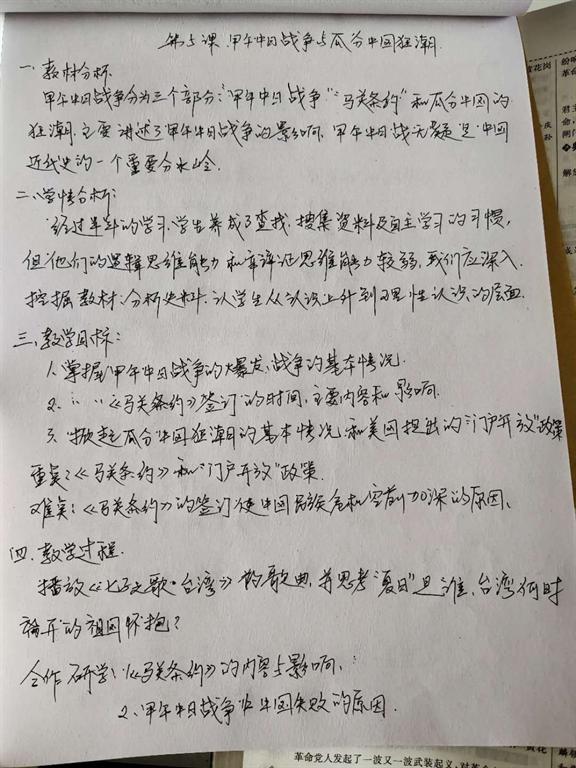 第5课 甲午中日战争与瓜分中国狂潮
一、教材分析
甲午中日战争分为三个部分:"甲午中日战争""马关条约"和瓜分中国的
狂潮,主要讲述了甲午中日战争的影响,甲午中日战无疑是中国
近代史的一个重要分水岭。
二、学情分析:
经过半年的学习,学生养成了查找、搜集资料及自主学习的习惯,
但他们的逻辑思维能力和辩证思维能力较弱,我们应深入
挖掘教材、分析史料,让学生从认识上升到理性认识的层面
三、教学目标:
1、掌握甲午中日战争的爆发、战争的基本情况
2、〃 〃《马关条约》签订的时间,主要内容和影响
3、掀起瓜分中国狂潮的基本情况和美国提出的"门户开放"政策
重点:《马关条约》和"门户开放"政策
难点:《马关条约》的签订使中国民族危机空前加深的原因、
四、教学过程
播放《七子之歌·台湾》的歌曲,并思考"夏日"是谁,台湾何时
离开的祖国怀抱?
合作研学:1、《马关条约》的内容与影响、
2、甲午中日战争中中国失败的原因.
黄花岗
革命党人发起了一波又一波武装起义,对革命